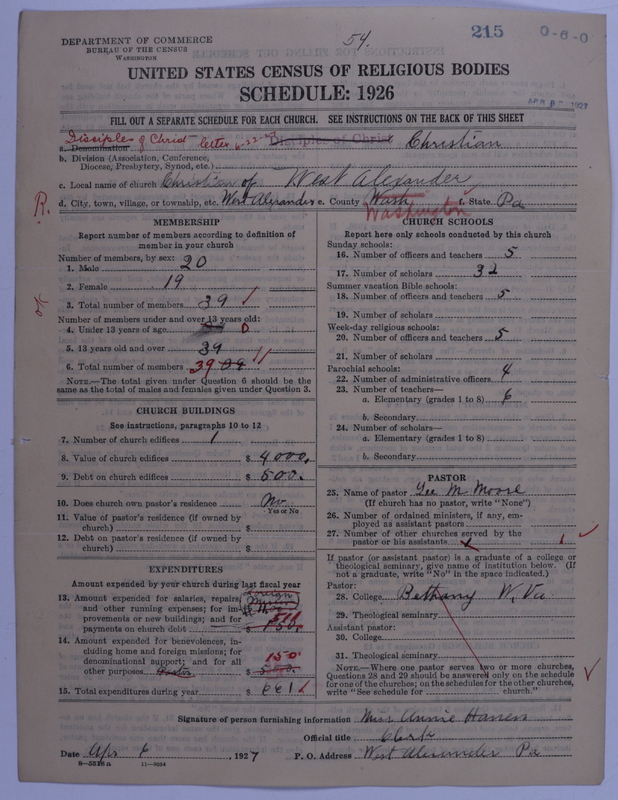 DEPARTMENT OF COMMERCE
BUREAU OF THE CENSUS
WASHINGTON
54.
215
0-6-0
UNITED STATES CENSUS OF RELIGIOUS BODIES
SCHEDULE: 1926
FILL OUT A SEPARATE SCHEDULE FOR EACH CHURCH. SEE INSTRUCTIONS ON THE BACK OF THIS SHEET
Disciples of Christ letter 6-22-28 Disciples of Christ
a. Denomination Christian
b. Division (Association, Conference,
Diocese, Presbytery, Synod, etc.)
c. Local name of church Christian of West Alexander
d. City, town, village, or township, etc. West Alexander e. County Wash f. State Pa
Washington
R.
MEMBERSHIP
Report number of members according to definition of
member in your church
Number of members, by sex:
1. Male 20
2. Female 19
3. Total number of members 39
Number of members under and over 13 years old:
4. Under 13 years of age 0
5. 13 years old and over 39
6. Total number of members 39
NOTE.—The total given under Question 6 should be the
same as the total of males and females given under Question 3.
ok
CHURCH BUILDINGS
See instructions, paragraphs 10 to 12
7. Number of church edifices 1
8. Value of church edifices $ 4000.
9. Debt on church edifices $ 500.
10. Does church own pastor's residence No
Yes or No
11. Value of pastor's residence (if owned by
church) $
12. Debt on pastor's residence (if owned by
church) $
EXPENDITURES
Amount expended by your church during last fiscal year
13. Amount expended for salaries, repairs,
and other running expenses; for im-
provements or new buildings; and for
payments on church debt $ 511
14. Amount expended for benevolences, in-
cluding home and foreign missions; for
denominational support; and for all
other purposes $ 150
15. Total expenditures during year $ 661
CHURCH SCHOOLS
Report here only schools conducted by this church
Sunday schools:
16. Number of officers and teachers 5
17. Number of scholars 32
Summer vacation Bible schools:
18. Number of officers and teachers 5
19. Number of scholars
Week-day religious schools:
20. Number of officers and teachers 5
21. Number of scholars
Parochial schools:
22. Number of administrative officers 4
23. Number of teachers—
a. Elementary (grades 1 to 8) 6
b. Secondary
24. Number of scholars—
a. Elementary (grades 1 to 8)
b. Secondary
PASTOR
25. Name of pastor Geo M Moore
(If church has no pastor, write "None")
26. Number of ordained ministers, if any, em-
ployed as assistant pastors
27. Number of other churches served by the
pastor or his assistants 1
If pastor (or assistant pastor) is a graduate of a college or
theological seminary, give name of institution below. (If
not a graduate, write "No" in the space indicated.)
Pastor:
28. College Bethany W. Va.
29. Theological seminary
Assistant pastor:
30. College
31. Theological seminary
NOTE.—Where one pastor serves two or more churches,
Questions 28 and 29 should be answered only on the schedule
for one of the churches; on the schedules for the other churches,
write "See schedule for church."
Signature of person furnishing information Miss Annie
Official title Clerk
Date Apr 6, 1927 P. O. Address West Alexander Pa
8—5518 a 11—9054